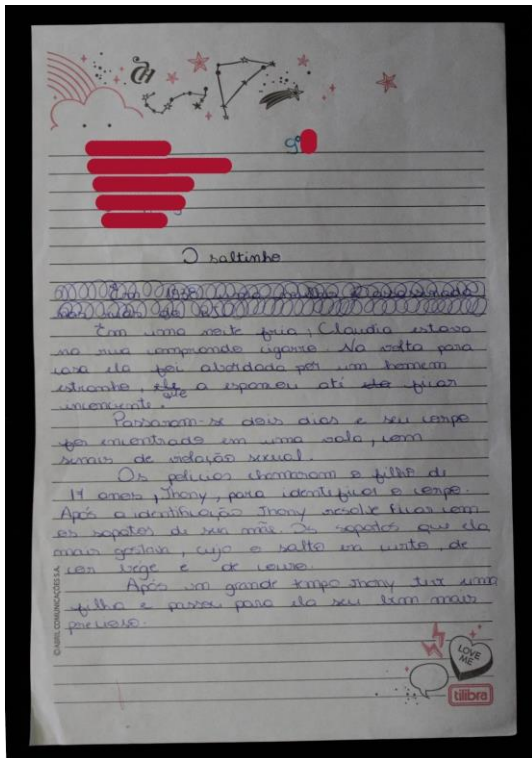 gi
O saltinho
Em 1938 uma
Em uma noite fria, Claudia estava
na rua comprando cigarro. Na volta para
casa ela foi abordada por um homem
estranho, ele que a espancou até ela ficar
inconciente.
Passaram-se dois dias e seu corpo
foi encontrado em uma vala, com
sinais de violação sexual.
Os policias chamaram o filho de
17 anos, Jhony, para identificar o corpo.
Após a identificação Jhony resolve ficar com
os sapatos de sua mãe. Os sapatos que ela
mais gostava, cujo o salto era curto, de
cor bege e de couro.
Após um grande tempo Jhony teve uma
filha e passou para ela seu bem mais
precioso.
©ABRIL COMUNICAÇÕES S.A.
LOVE
ME
tilibra